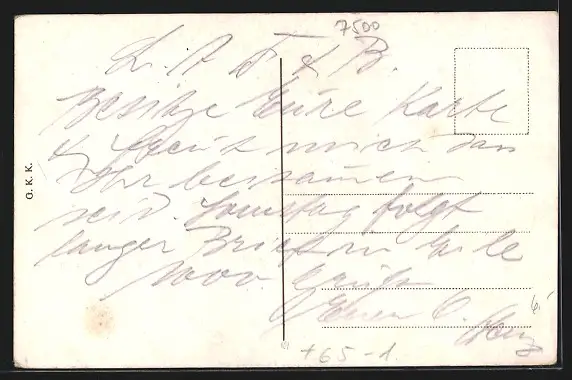 7500
L. A. T. & B.
Besitze Eure Karte
& freut mich dass
Ihr beisamen
seid. Samstag folgt
langer Brief in Eile
1000 Grüße
Euer O.
G. K. K.
+65-1